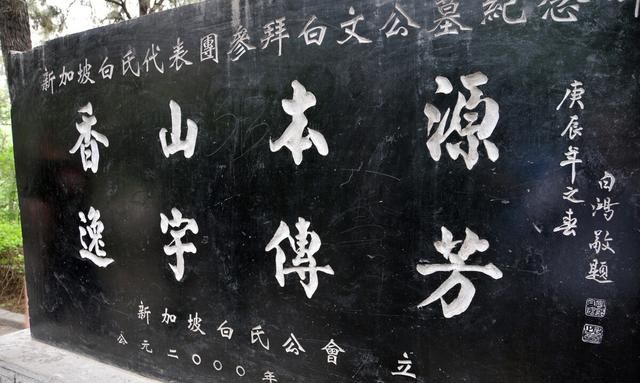 新加坡白氏代表團參拜白文公墓紀念
庚辰年之春
白鴻敬題
源芳
本傳
山宇
香逸
新加坡白氏公會 立
公元二〇〇〇年